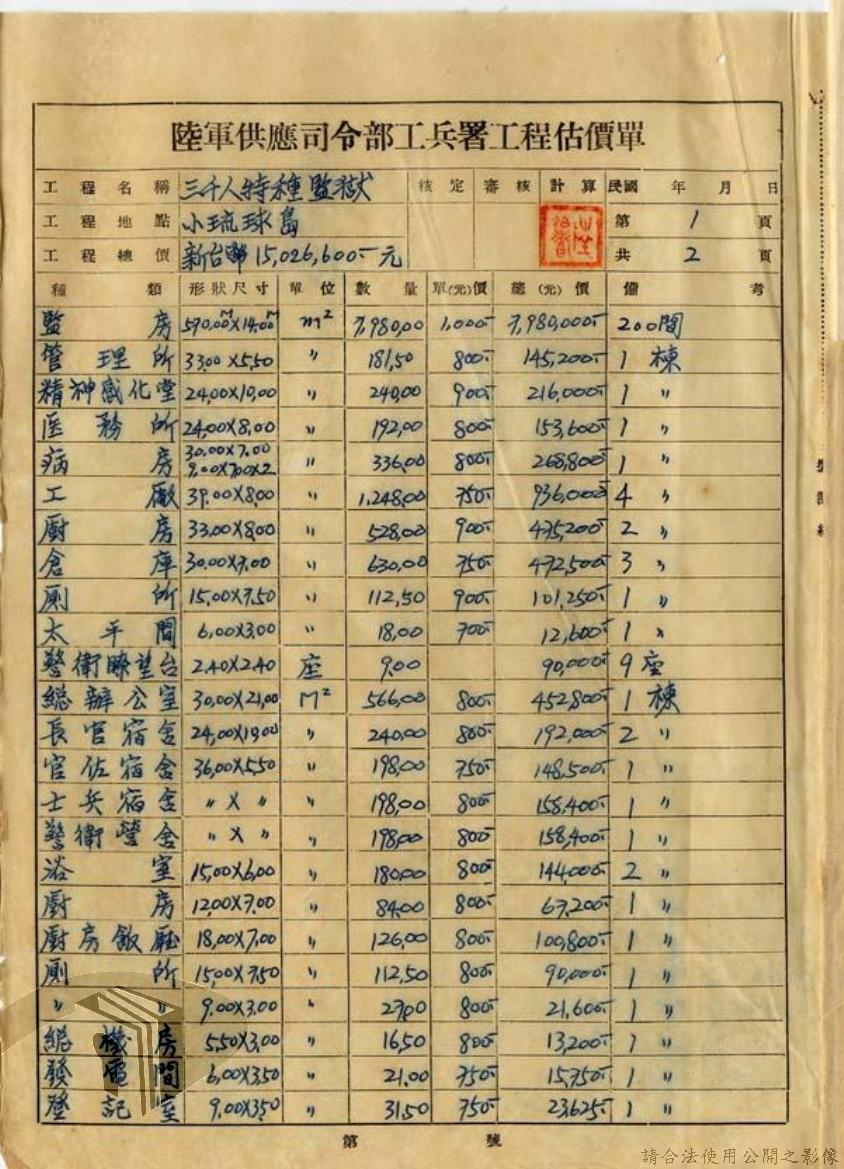 陸軍供應司令部工兵署工程估價單
工程名稱 三千人特種監獄 核定 審核 計算 民國 年 月 日
工程地點 小琉球島 第 1 頁
工程總價 新台幣 15,026,600.- 元 共 2 頁
種類 形狀尺寸 單位 數量 單(元)價 總(元)價 備考
監房 570.00M×14.00M m² 7,980.00 1,000.- 7,980,000.- 200間
管理所 33.00×5.50 〃 181.50 800.- 145,200.- 1 棟
精神感化堂 24.00×10.00 〃 240.00 900.- 216,000.- 1 〃
医務所 24.00×8.00 〃 192.00 800.- 153,600.- 1 〃
病房 30.00×7.00 9.00×7.00×2 〃 336.00 800.- 268,800.- 1 〃
工廠 39.00×8.00 〃 1,248.00 750.- 936,000.- 4 〃
厨房 33.00×8.00 〃 528.00 900.- 475,200.- 2 〃
倉庫 30.00×7.00 〃 630.00 750.- 472,500.- 3 〃
厠所 15.00×7.50 〃 112.50 900.- 101,250.- 1 〃
太平間 6.00×3.00 〃 18.00 700.- 12,600.- 1 〃
警衛瞭望台 2.40×2.40 座 9.00 90,000.- 9 座
總辦公室 30.00×21.00 M² 566.00 800.- 452,800.- 1 棟
長官宿舍 24.00×10.00 〃 240.00 800.- 192,000.- 2 〃
官佐宿舍 36.00×5.50 〃 198.00 750.- 148,500.- 1 〃
士兵宿舍 〃×〃 〃 198.00 800.- 158,400.- 1 〃
警衛營舍 〃×〃 〃 198.00 800.- 158,400.- 1 〃
浴室 15.00×6.00 〃 180.00 800.- 144,000.- 2 〃
厨房 12.00×7.00 〃 84.00 800.- 67,200.- 1 〃
厨房飯廳 18.00×7.00 〃 126.00 800.- 100,800.- 1 〃
厠所 15.00×7.50 〃 112.50 800.- 90,000.- 1 〃
〃 〃 9.00×3.00 〃 27.00 800.- 21,600.- 1 〃
總機房 5.50×3.00 〃 16.50 800.- 13,200.- 1 〃
發電間 6.00×3.50 〃 21.00 750.- 15,750.- 1 〃
登記室 9.00×3.50 〃 31.50 750.- 23,625.- 1 〃
第 號
請合法使用公開之影像